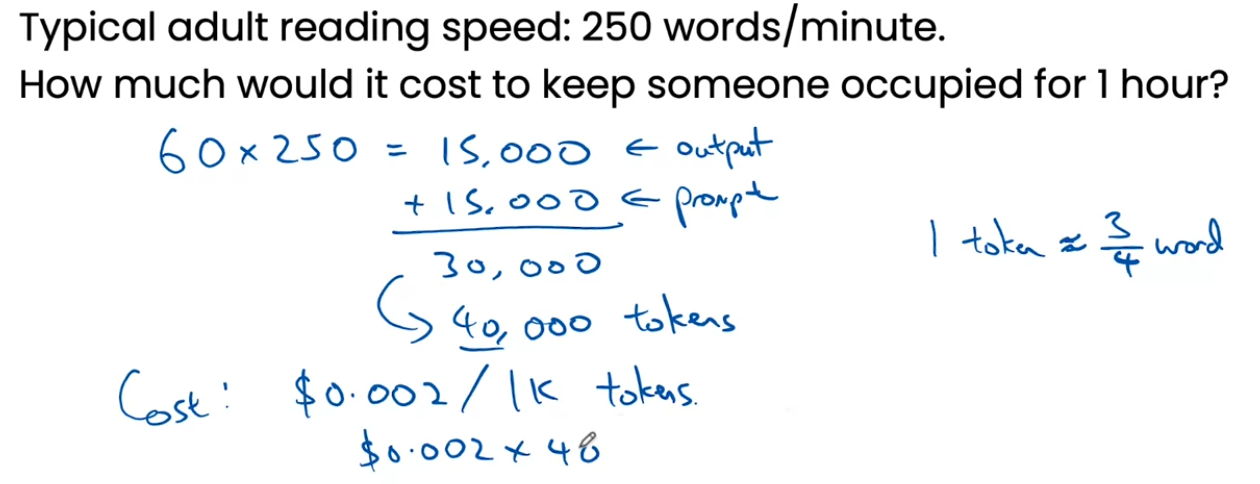 Typical adult reading speed: 250 words/minute.
How much would it cost to keep someone occupied for 1 hour?
60 × 250 = 15,000 ← output
+ 15,000 ← prompt
30,000
1 token ≈ 3/4 word
↳ 40,000 tokens
Cost: $0.002 / 1K tokens.
$0.002 × 40